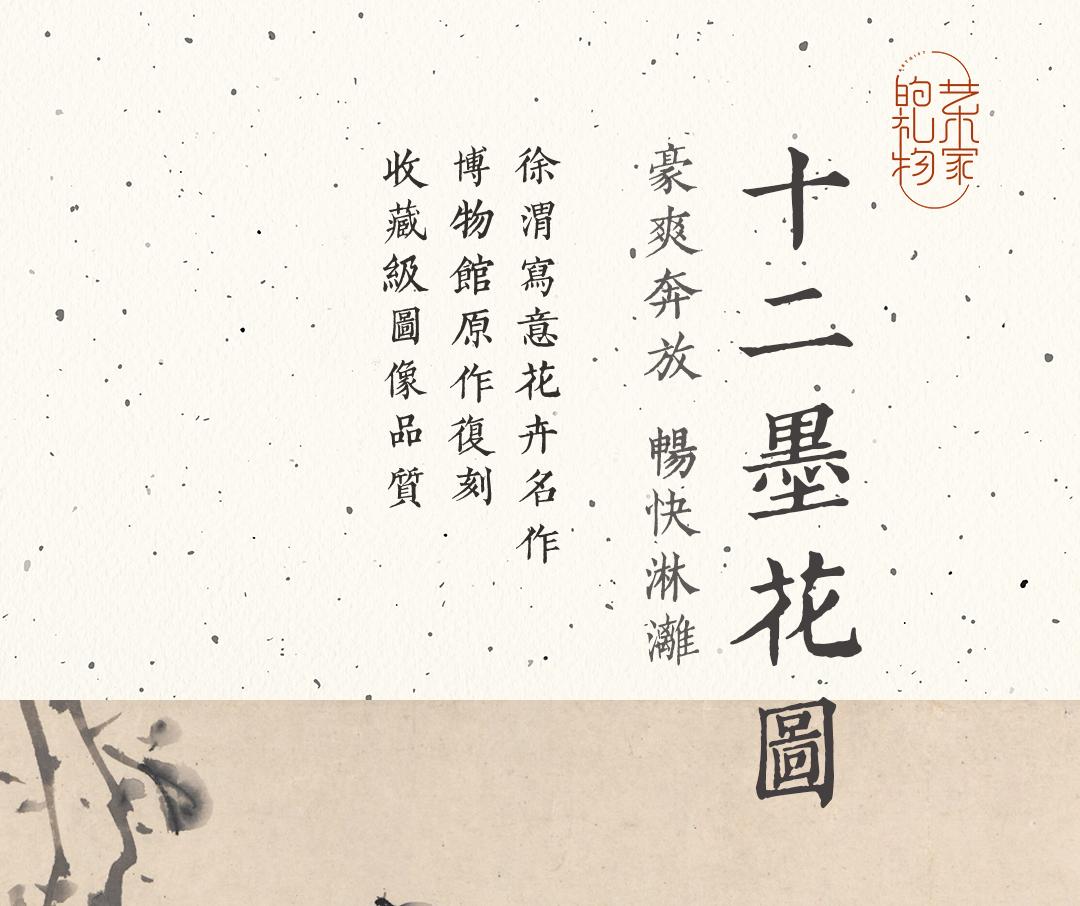 艺术家
的礼物
十二墨花圖
豪爽奔放 暢快淋灕
徐渭寫意花卉名作
博物館原作復刻
收藏級圖像品質